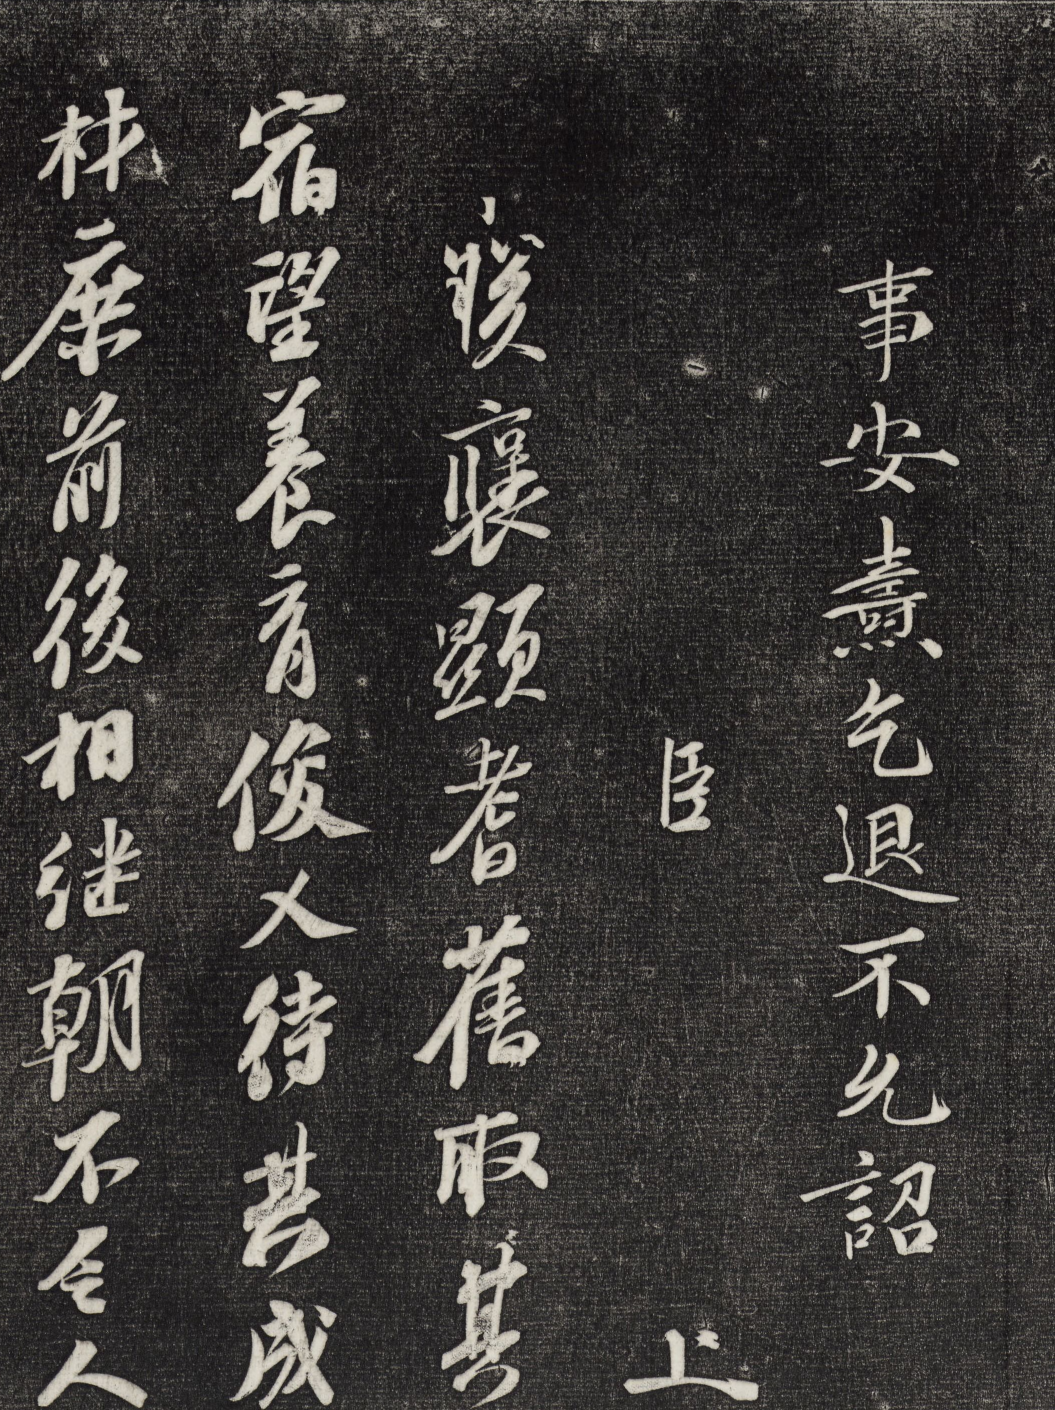 事安燾乞退不允詔
臣上
朕襃顯耆舊取其
宿望養育俊乂待其成
材庶前後相继朝不乏人